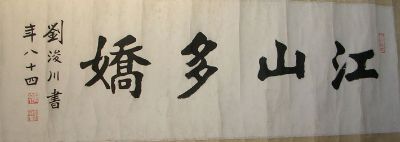 江山多嬌
劉浚川書
年八十四